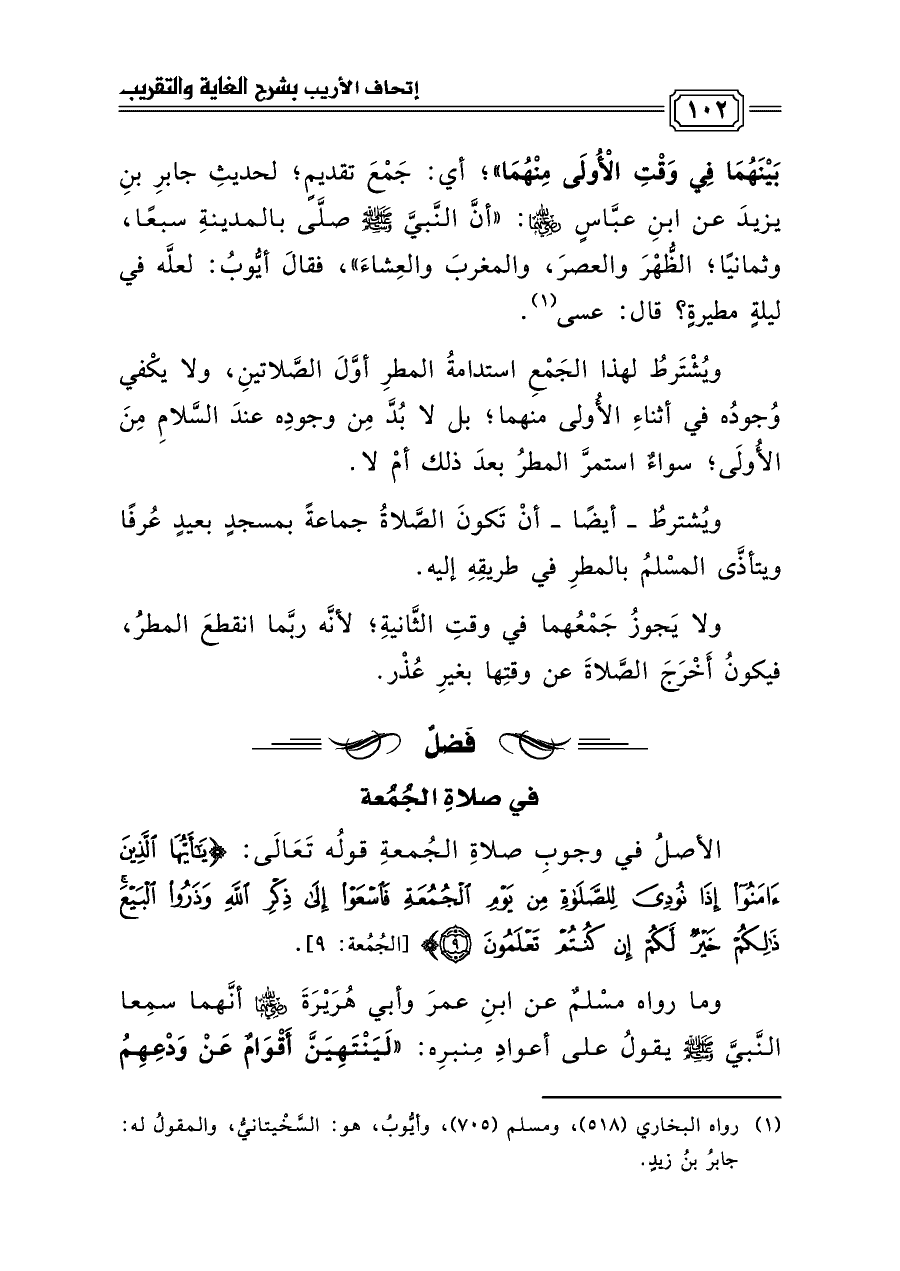 إتحاف الأريب بشرح الغاية والتقريب
١٠٢
بَيْنَهُمَا فِي وَقْتِ الْأُولَى مِنْهُمَا»؛ أي: جَمْعَ تقديمٍ؛ لحديثِ جابرِ بنِ
يزيدَ عن ابنِ عبَّاسٍ ﵄: «أنَّ النَّبيَّ ﷺ صلَّى بالمدينةِ سبعًا،
وثمانيًا؛ الظُّهْرَ والعصرَ، والمغربَ والعِشاءَ»، فقالَ أيُّوبُ: لعلَّه في
ليلةٍ مطيرةٍ؟ قال: عسى(١).
ويُشْتَرطُ لهذا الجَمْعِ استدامةُ المطرِ أوَّلَ الصَّلاتينِ، ولا يكْفي
وُجودُه في أثناءِ الأُولى منهما؛ بل لا بُدَّ مِن وجودِه عندَ السَّلامِ مِنَ
الأُولَى؛ سواءٌ استمرَّ المطرُ بعدَ ذلك أمْ لا.
ويُشترطُ ـ أيضًا ـ أنْ تَكونَ الصَّلاةُ جماعةً بمسجدٍ بعيدٍ عُرفًا
ويتأذَّى المسْلمُ بالمطرِ في طريقِهِ إليه.
ولا يَجوزُ جَمْعُهما في وقتِ الثَّانيةِ؛ لأنَّه ربَّما انقطعَ المطرُ،
فيكونُ أَخْرَجَ الصَّلاةَ عن وقتِها بغيرِ عُذْر.
فَصْلٌ
في صلاةِ الجُمُعة
الأصلُ في وجوبِ صلاةِ الجُمعةِ قولُه تَعَالَى: ﴿يَٰٓأَيُّهَا ٱلَّذِينَ
ءَامَنُوٓا۟ إِذَا نُودِىَ لِلصَّلَوٰةِ مِن يَوْمِ ٱلْجُمُعَةِ فَٱسْعَوْا۟ إِلَىٰ ذِكْرِ ٱللَّهِ وَذَرُوا۟ ٱلْبَيْعَ ۚ
ذَٰلِكُمْ خَيْرٌ لَّكُمْ إِن كُنتُمْ تَعْلَمُونَ ٩﴾ [الجُمُعة: ٩].
وما رواه مسْلمٌ عن ابنِ عمرَ وأبي هُرَيْرَةَ ﵃ أنَّهما سمِعا
النَّبيَّ ﷺ يقولُ على أعوادِ مِنبرِه: «لَيَنْتَهِيَنَّ أَقْوَامٌ عَنْ وَدْعِهِمُ
(١) رواه البخاري (٥١٨)، ومسلم (٧٠٥)، وأيُّوبُ، هو: السَّخْتيانيُّ، والمقولُ له:
جابرُ بنُ زيدٍ.